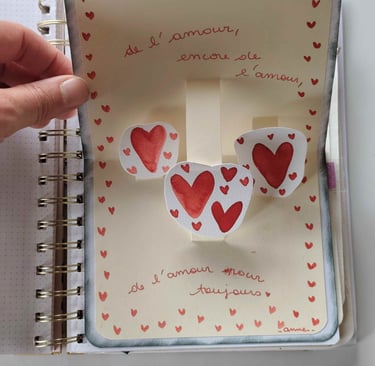 de l'amour,
encore de
l'amour,
de l'amour pour
toujours
-anne-